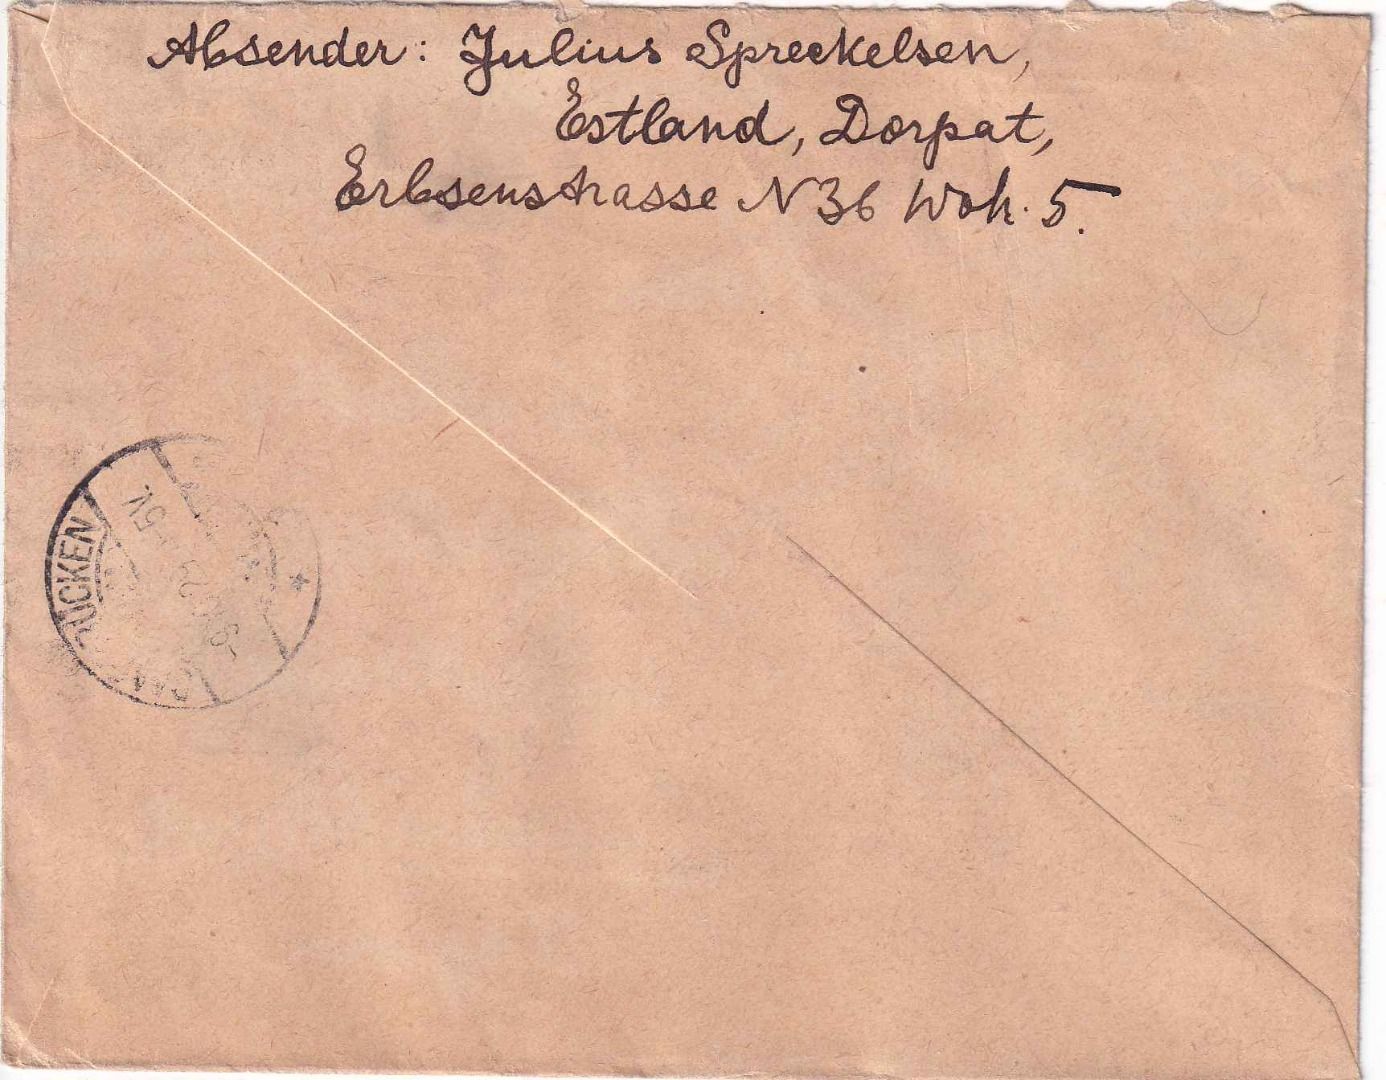 Absender: Julius Spreckelsen,
Estland, Dorpat,
Erbsenstrasse N 36 Woh. 5.
ÜCKEN